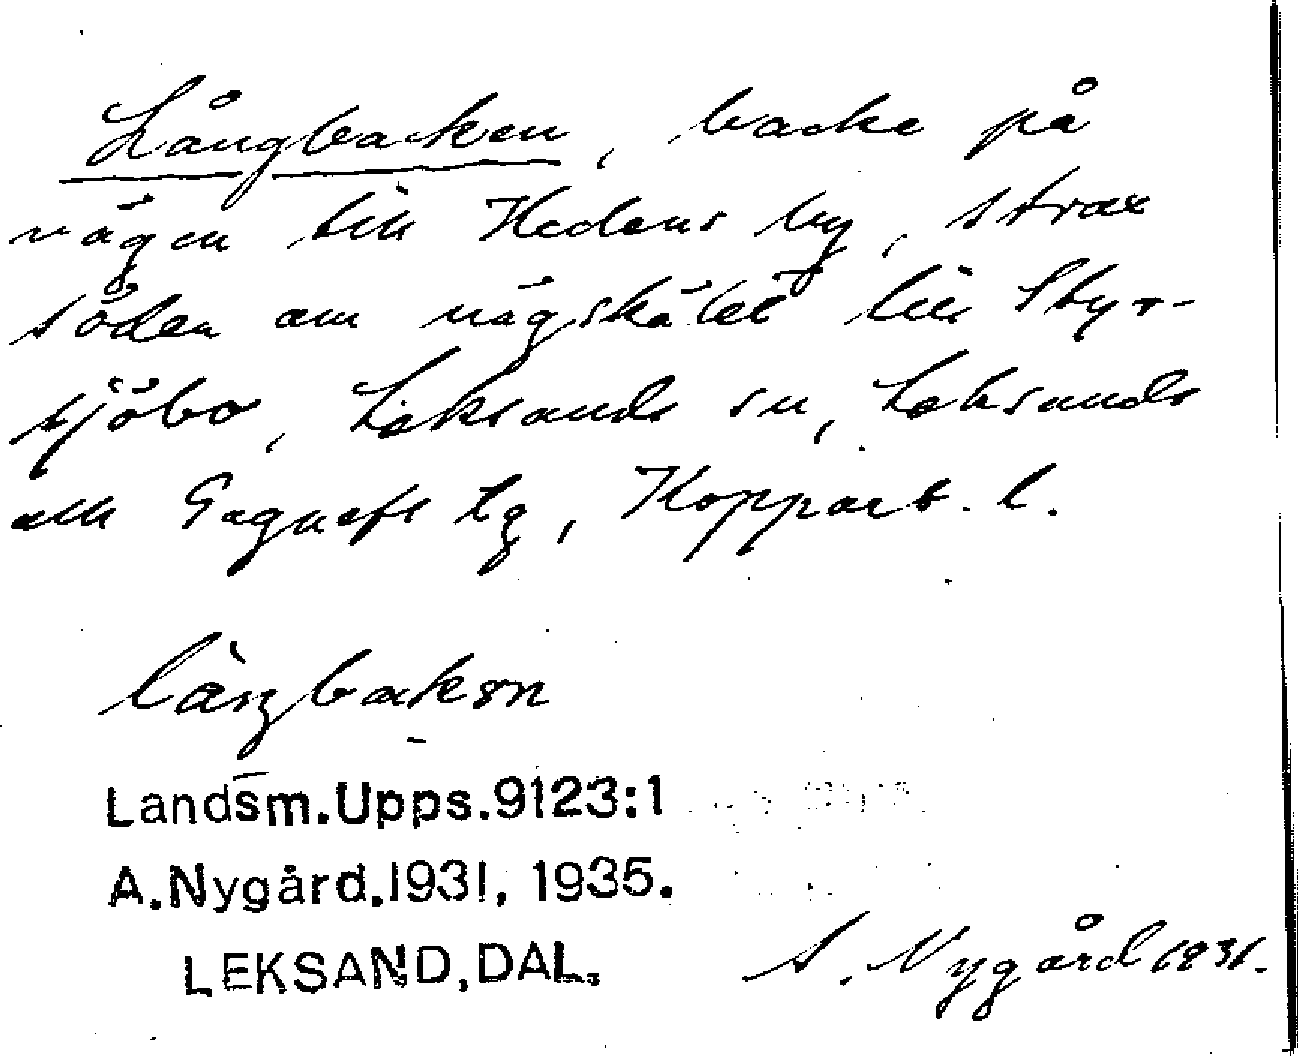 Långbacken, backe på
vägen till Hedens by, strax
söder om vägskälet till Styr-
sjöbo, Leksands sn, Leksands
och Gagnefs tg, Kopparb. l.
Landsm.Upps.9123:1
A.Nygård.1931, 1935.
LEKSAND, DAL.
A. Nygård 1931.